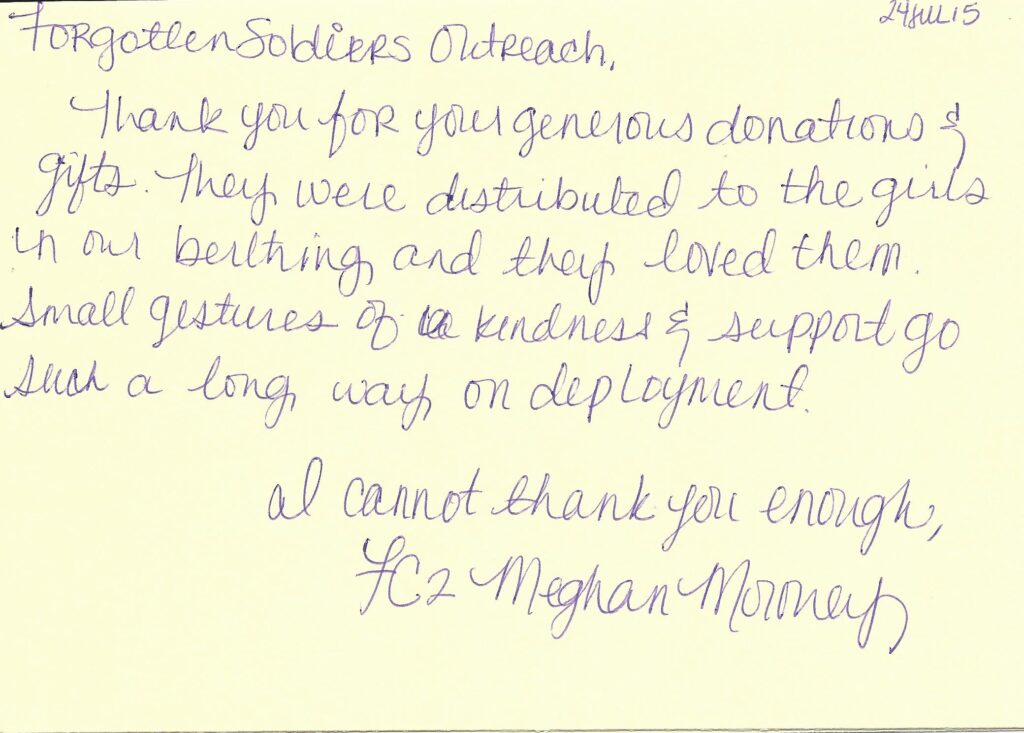 24JUL15
Forgotten Soldiers Outreach,
Thank you for your generous donations &
gifts. They were distributed to the girls
in our berthing and they loved them.
Small gestures of kindness & support go
such a long way on deployment.
I cannot thank you enough,
FC2 Meghan Moroney